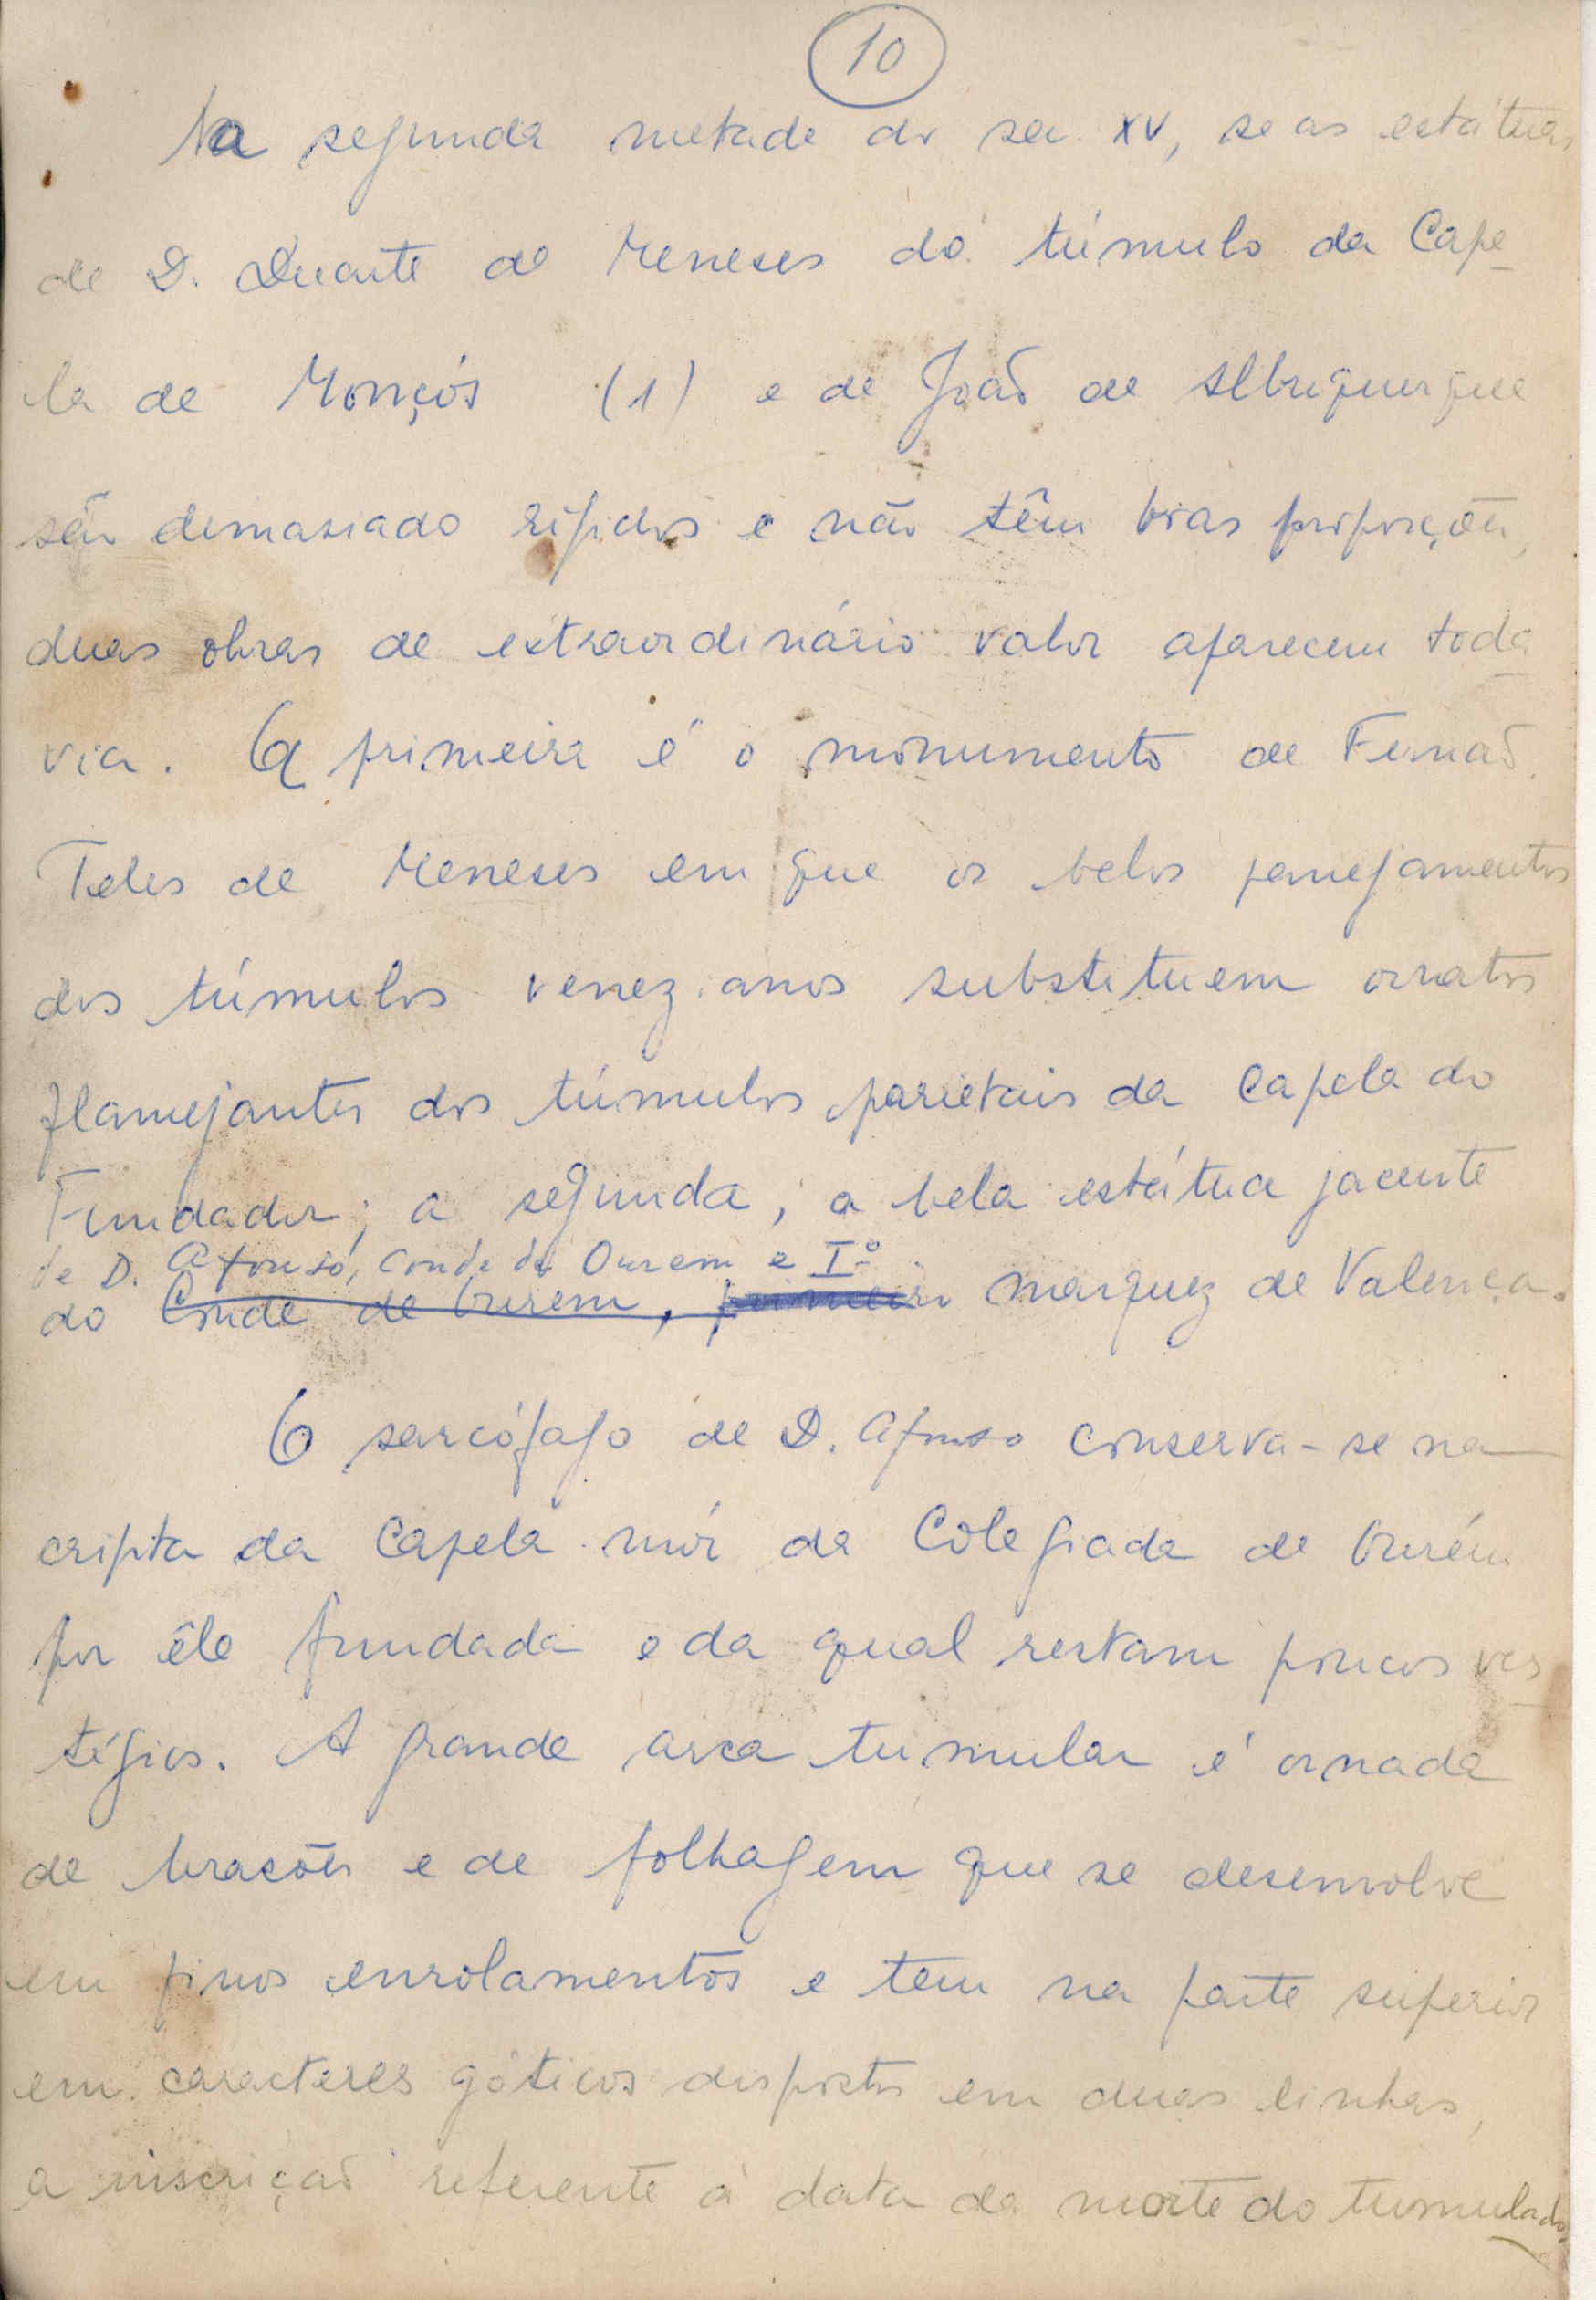 10
Na segunda metade do sec. XV, se as estátuas
de D. Duarte de Meneses do túmulo da Cape
la de Monçós (1) e de João de Albuquerque
são demasiado rígidos e não têm boas proporções,
duas obras de extraordinário valor aparecem toda
via. A primeira é o monumento de Fernão
Teles de Meneses em que os belos panejamentos
dos túmulos venezianos substituem ornatos
flamejantes dos túmulos parietais da Capela do
Fundador; a segunda, a bela estátua jacente
de D. Afonso, Conde de Ourem e Iº
do Conde de Ourem, primeiro marquez de Valença.
O sarcófago de D. Afonso conserva-se na
cripta da Capela mór da Colegiada de Ourém
por êle fundada e da qual restam poucos ves
tígios. A grande arca tumular é ornada
de brasões e de folhagem que se desenvolve
em finos enrolamentos e tem na parte superior
em caracteres góticos dispostos em duas linhas,
a inscrição referente à data da morte do tumulado.